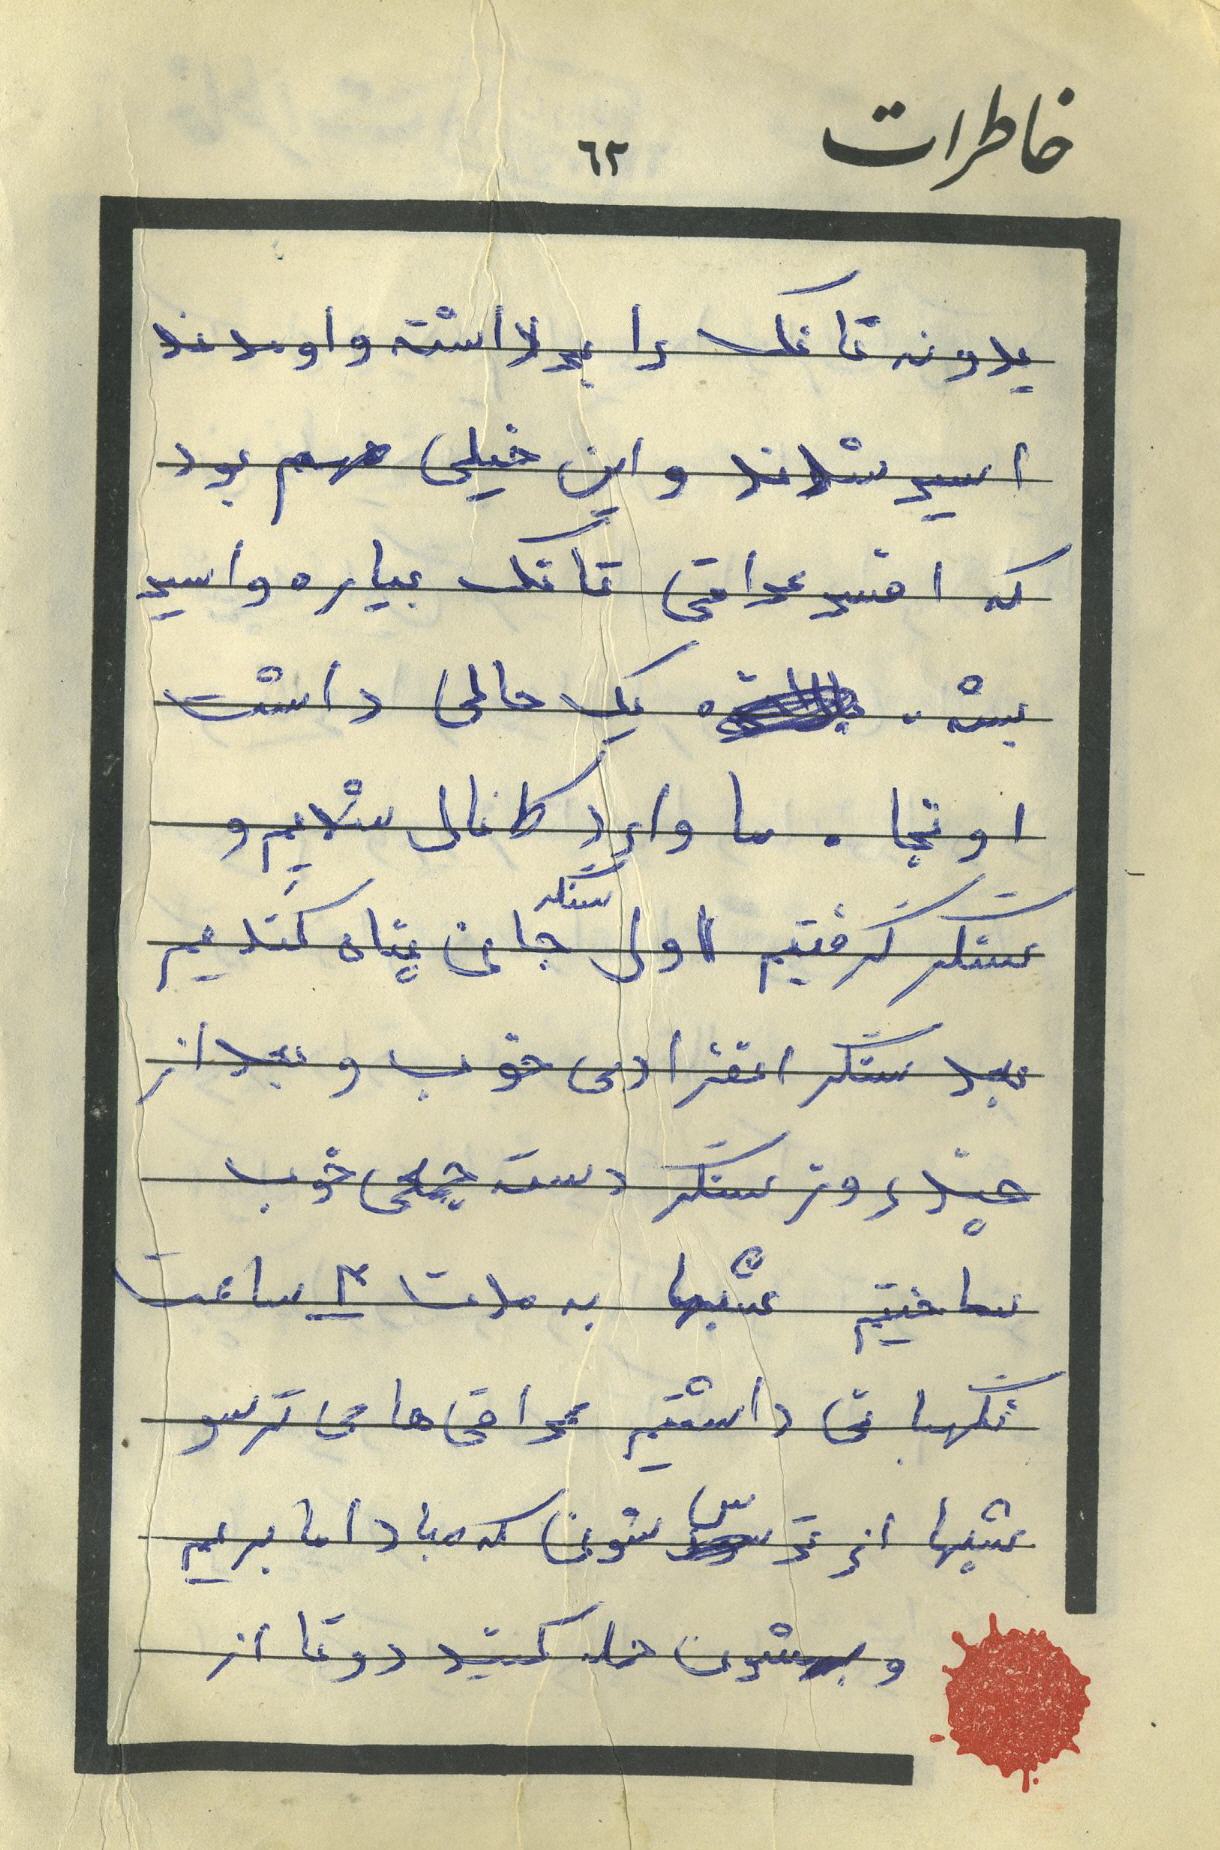 خاطرات
٦٢
یدونه تانک را برداشته و اومدند
اسیر شدند و این خیلی مهم بود
که افسر عراقی تانک بیاره و اسیر
بشه . یک حالی داشت
اونجا . ما وارد کانال شدیم و
سنگر گرفتیم اول سنگر جان پناه کَندیم
بعد سنگر انفرادی خوب و بعد از
چند روز سنگر دسته جمعی خوب
ساختیم شبها به مدت ٣ ساعت
نگهبانی داشتیم عراقی ها می ترسو
شبها از ترس شون که مبادا ما بریم
و بهشون حمله کنید دوتا از